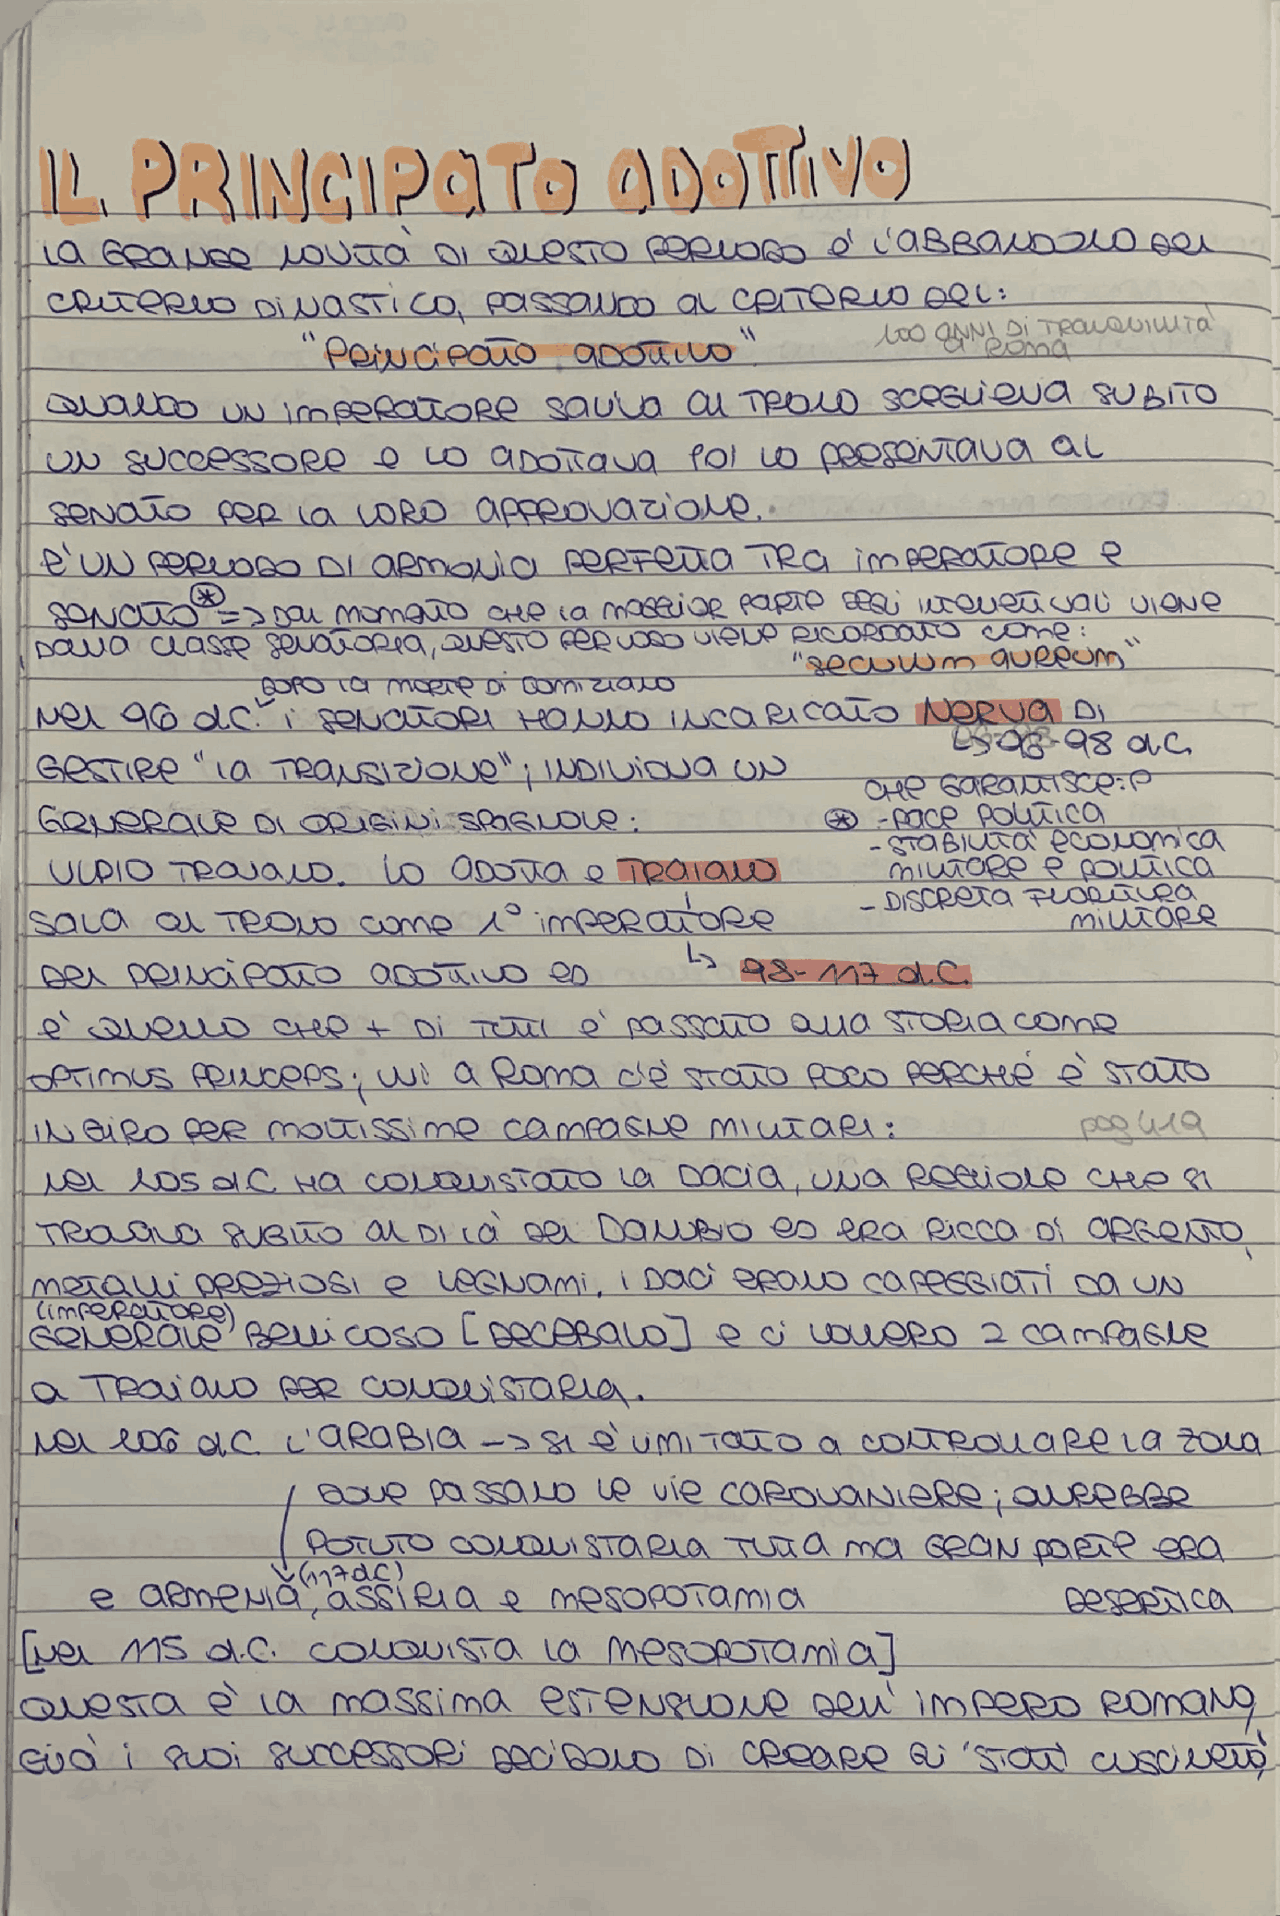 IL PRINCIPATO ADOTTIVO
LA GRANDE NOVITÀ DI QUESTO PERIODO E' L'ABBANDONO DEL
CRITERIO DINASTICO, PASSANDO AL CRITERIO DEL:
"PRINCIPATO ADOTTIVO"
100 ANNI DI TRANQUILLITÀ
A ROMA
QUANDO UN IMPERATORE SALIVA AL TRONO SCEGLIEVA SUBITO
UN SUCCESSORE E LO ADOTTAVA POI LO PRESENTAVA AL
SENATO PER LA LORO APPROVAZIONE.
E' UN PERIODO DI ARMONIA PERFETTA TRA IMPERATORE E
SENATO * => DAL MOMENTO CHE LA MAGGIOR PARTE DEGLI INTELLETTUALI VIENE
DALLA CLASSE SENATORIA, QUESTO PERIODO VIENE RICORDATO COME:
"SECULUM AUREUM"
DOPO LA MORTE DI DOMIZIANO
NEL 96 d.C. I SENATORI HANNO INCARICATO NERVA DI
↳ 96-98 d.C.
GESTIRE "LA TRANSIZIONE"; INDIVIDUA UN
GENERALE DI ORIGINI SPAGNOLE:
ULPIO TRAIANO. LO ADOTTA E TRAIANO
CHE GARANTISCE:
* -PACE POLITICA
-STABILITÀ ECONOMICA
MILITARE E POLITICA
-DISCRETA FIORITURA
MILITARE
SALA AL TRONO COME 1° IMPERATORE
DEL PRINCIPATO ADOTTIVO ED ↳ 98-117 d.C.
E' QUELLO CHE + DI TUTTI E' PASSATO ALLA STORIA COME
OPTIMUS PRINCEPS; LUI A ROMA C'È STATO POCO PERCHÉ È STATO
IN GIRO PER MOLTISSIME CAMPAGNE MILITARI:
pag 419
NEL 105 d.C HA CONQUISTATO LA DACIA, UNA REGIONE CHE SI
TROVAVA SUBITO AL DI LÀ DEL DANUBIO ED ERA RICCA DI ARGENTO,
METALLI PREZIOSI E LEGNAMI. I DACI ERANO CAPEGGIATI DA UN
(IMPERATORE)
GENERALE BELLICOSO [DECEBALO] E CI VOLLERO 2 CAMPAGNE
A TRAIANO PER CONQUISTARLA.
NEL 106 d.C. L'ARABIA -> SI E' LIMITATO A CONTROLLARE LA ZONA
DOVE PASSANO LE VIE CAROVANIERE; AVREBBE
POTUTO CONQUISTARLA TUTTA MA GRAN PARTE ERA
DESERTICA
(117 d.C)
E ARMENIA, ASSIRIA E MESOPOTAMIA
[NEL 115 d.C. CONQUISTA LA MESOPOTAMIA]
QUESTA È LA MASSIMA ESTENSIONE DELL'IMPERO ROMANO,
GIÀ I SUOI SUCCESSORI DECIDONO DI CREARE GLI 'STATI CUSCINETTO'